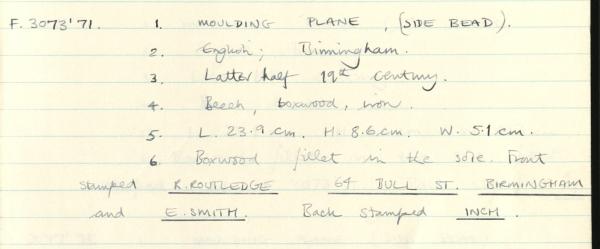 F. 3073'71. 1. MOULDING PLANE, (SIDE BEAD).
2. English; Birmingham.
3. Latter half 19th century.
4. Beech, boxwood, iron.
5. L. 23.9 cm. H. 8.6 cm. W. 5.1 cm.
6 Boxwood fillet in the sole. Front
stamped K. ROUTLEDGE 64 BULL ST. BIRMINGHAM
and E. SMITH. Back stamped INCH.